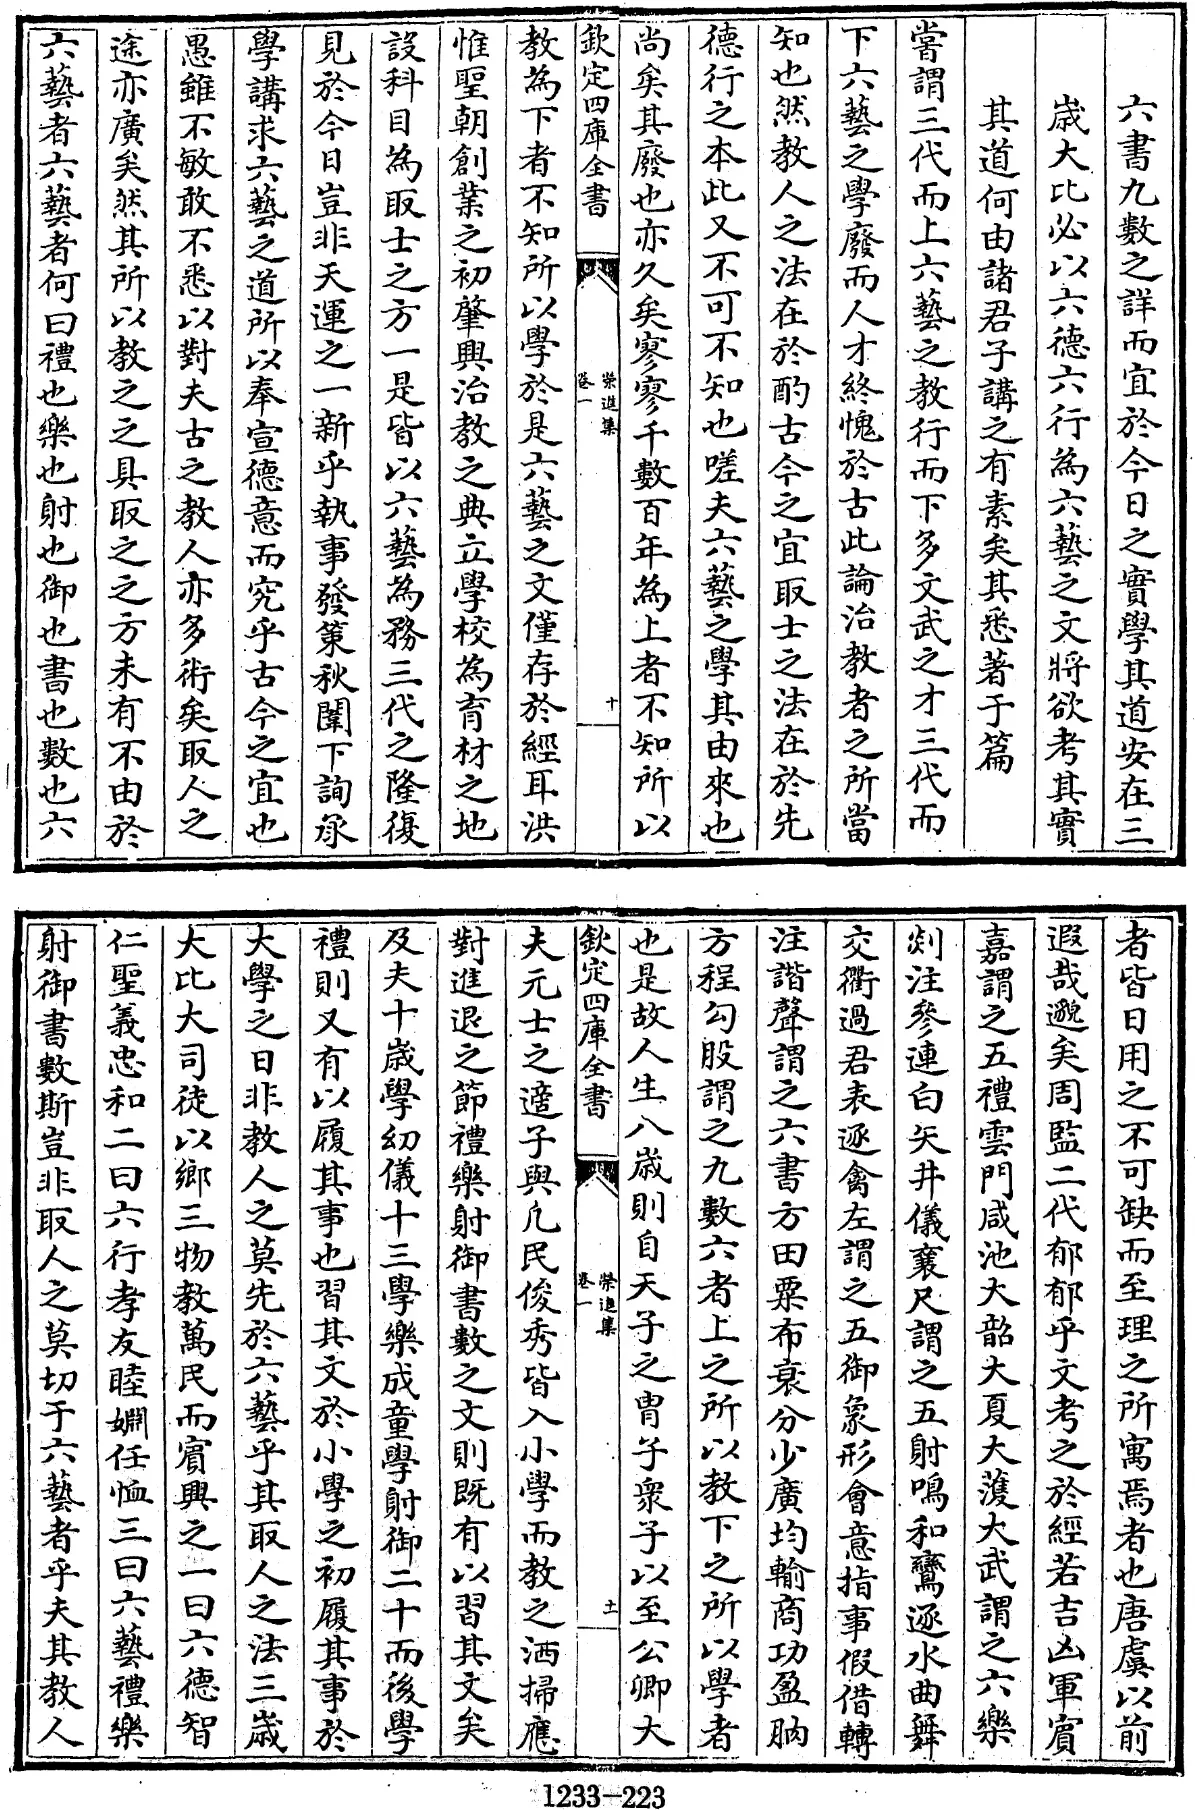 六書九數之詳而宜於今日之實學其道安在三
歳大比必以六德六行為六藝之文將欲考其實
其道何由諸君子講之有素矣其悉著于篇
嘗謂三代而上六藝之教行而下多文武之才三代而
下六藝之學廢而人才終愧於古此論治教者之所當
知也然教人之法在於酌古今之宜取士之法在於先
德行之本此又不可不知也嗟夫六藝之學其由來也
尚矣其廢也亦久矣寥寥千數百年為上者不知所以
欽定四庫全書
榮進集
卷一
十
教為下者不知所以學於是六藝之文僅存於經耳洪
惟聖朝創業之初肇興治教之典立學校為育材之地
設科目為取士之方一是皆以六藝為務三代之隆復
見於今日豈非天運之一新乎執事發策秋闈下詢承
學講求六藝之道所以奉宣德意而究乎古今之宜也
愚雖不敏敢不悉以對夫古之教人亦多術矣取人之
途亦廣矣然其所以教之之具取之之方未有不由於
六藝者六藝者何曰禮也樂也射也御也書也數也六
者皆日用之不可缺而至理之所寓焉者也唐虞以前
遐哉邈矣周監二代郁郁乎文考之於經若吉凶軍賓
嘉謂之五禮雲門咸池大韶大夏大濩大武謂之六樂
剡注參連白矢井儀襄尺謂之五射鳴和鸞逐水曲舞
交衢過君表逐禽左謂之五御象形會意指事假借轉
注諧聲謂之六書方田粟布衰分少廣均輸商功盈朒
方程勾股謂之九數六者上之所以教下之所以學者
也是故人生八歳則自天子之胄子衆子以至公卿大
欽定四庫全書
榮進集
卷一
十一
夫元士之適子與凡民俊秀皆入小學而教之洒掃應
對進退之節禮樂射御書數之文則既有以習其文矣
及夫十歳學幼儀十三學樂成童學射御二十而後學
禮則又有以履其事也習其文於小學之初履其事於
大學之日非教人之莫先於六藝乎其取人之法三歳
大比大司徒以鄉三物教萬民而賓興之一曰六德智
仁聖義忠和二曰六行孝友睦婣任恤三曰六藝禮樂
射御書數斯豈非取人之莫切于六藝者乎夫其教人
1233—223